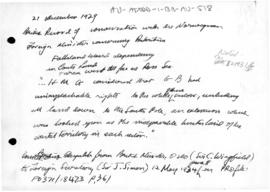 AU-ATADD-1-BB-AU-518
21 December 1929
Record of conversation with the Norwegian
Foreign Minister concerning
Falkland Islands dependency
as far as Ross Sea
"H.M.G. considered that G-B had
unimpeachable rights to the whole sector, including
all land down to the South Pole, an extension which
was looked upon as the inseparable hinterland of the
coastal territory in each sector."
despatch from British Minister, Oslo (Wingfield)
to Foreign Secretary (Sir J. Simon) 12 May 1934 in PRO file
FO371/18473 p.36)